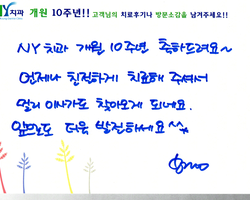 NY치과 개원 10주년!! 고객님의 치료후기나 방문소감을 남겨주세요!!
NY 치과 개원 10주년 축하드려요~
언제나 친절하게 치료해 주셔서
멀리 이사가도 찾아오게 되네요.
앞으로도 더욱 발전하세요^^